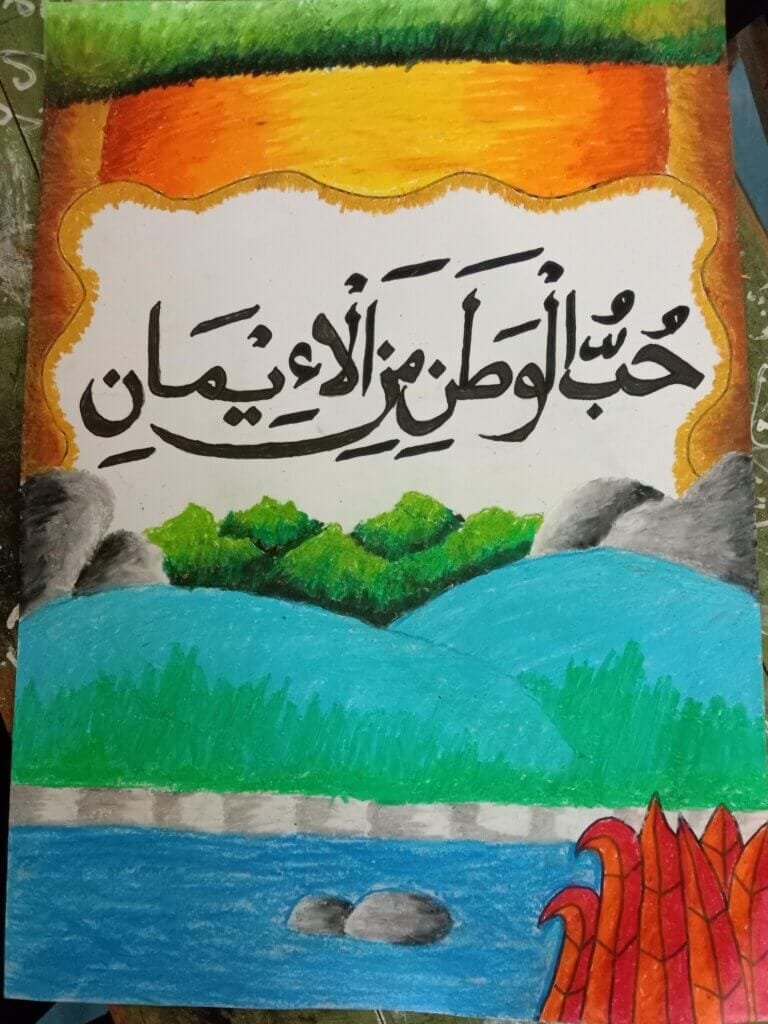 حُبُّ الْوَطَنِ مِنَ الْاءِيْمَانِ